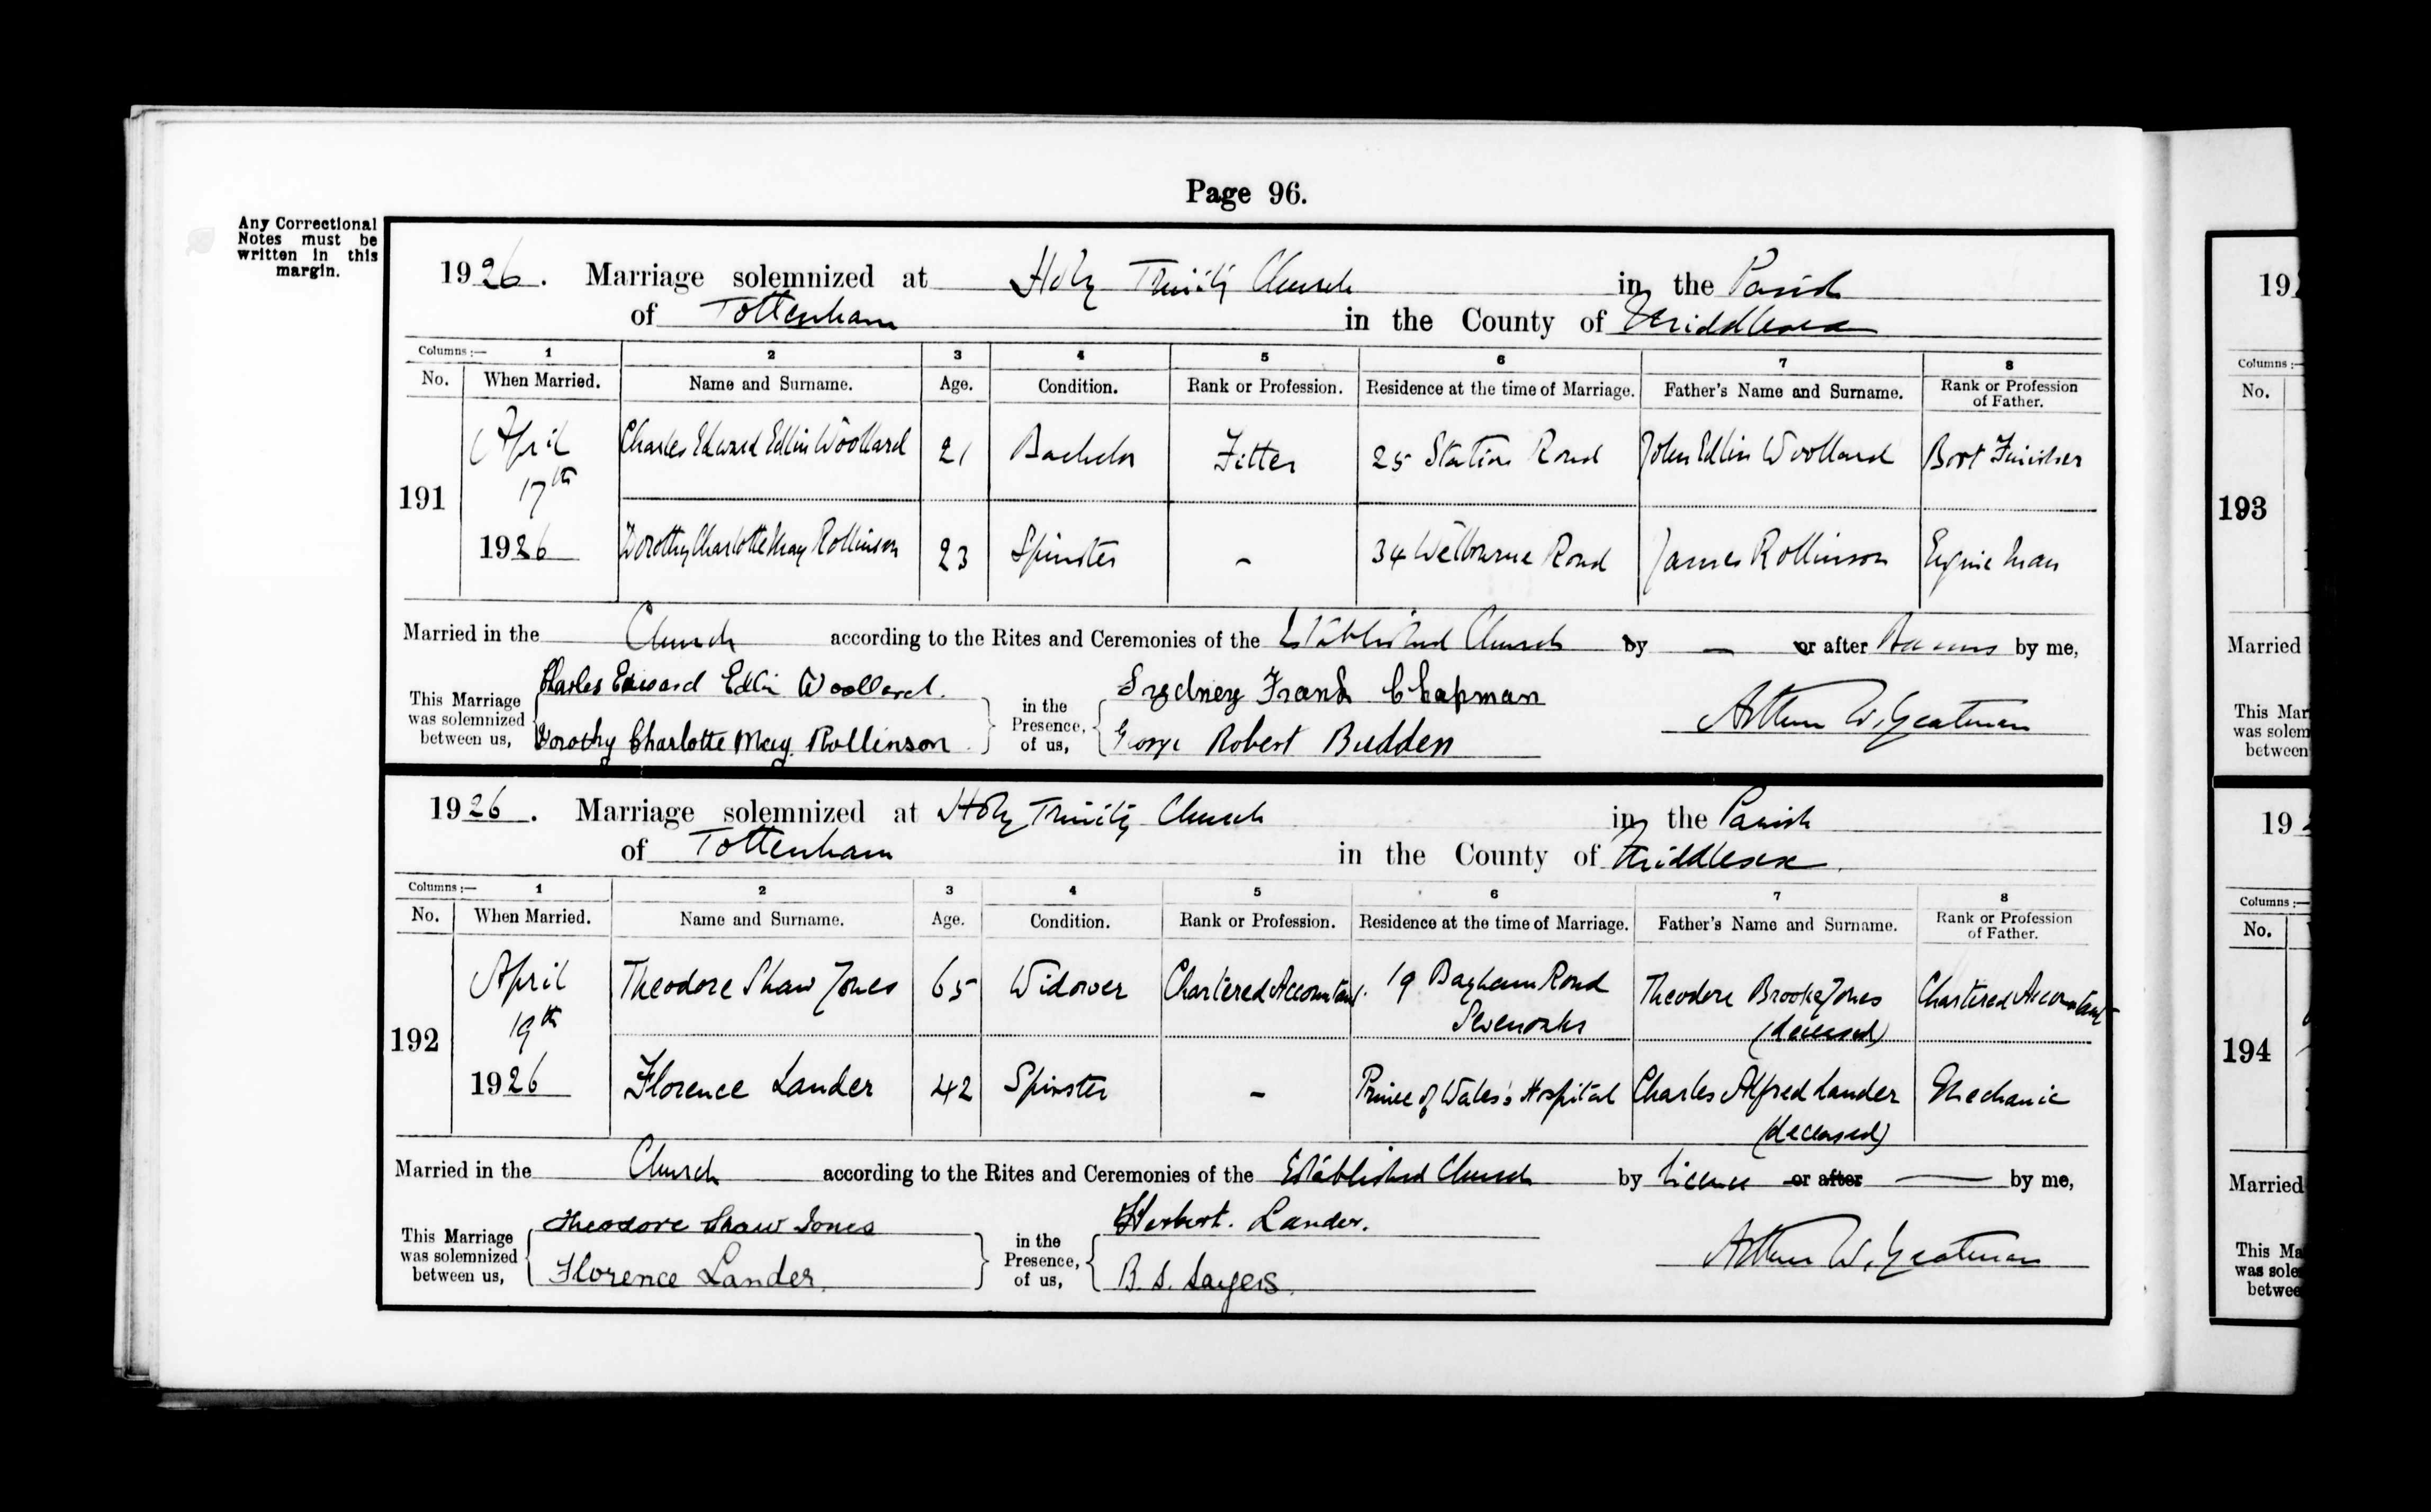 Page 96.
Any Correctional
Notes must be
written in this
margin.
1926. Marriage solemnized at Holy Trinity Church in the Parish
of Tottenham in the County of Middlesex
Columns:— 1 2 3 4 5 6 7 8
No. When Married. Name and Surname. Age. Condition. Rank or Profession. Residence at the time of Marriage. Father's Name and Surname. Rank or Profession of Father.
191
April 17th 1926
Charles Edward Edlin Woollard 21 Bachelor Fitter 25 Station Road John Edlin Woollard Boot Finisher
Dorothy Charlotte May Rollinson 23 Spinster - 34 Welbourne Road James Rollinson Engine Man
Married in the Church according to the Rites and Ceremonies of the Established Church by — or after Banns by me,
This Marriage
was solemnized
between us,
Charles Edward Edlin Woollard.
Dorothy Charlotte May Rollinson
in the
Presence,
of us,
Sydney Frank Chapman
George Robert Budden
Arthur W. Yeatman
1926. Marriage solemnized at Holy Trinity Church in the Parish
of Tottenham in the County of Middlesex.
Columns:— 1 2 3 4 5 6 7 8
No. When Married. Name and Surname. Age. Condition. Rank or Profession. Residence at the time of Marriage. Father's Name and Surname. Rank or Profession of Father.
192
April 19th 1926
Theodore Shaw Jones 65 Widower Chartered Accountant. 19 Road Sevenoaks Theodore Brooke Jones (deceased) Chartered Accountant
Florence Lander 42 Spinster - Prince of Wales's Hospital Charles Alfred Lander (deceased) Mechanic
Married in the Church according to the Rites and Ceremonies of the Established Church by Licence or after — by me,
This Marriage
was solemnized
between us,
Theodore Shaw Jones
Florence Lander.
in the
Presence,
of us,
Herbert. Lander.
B. S. Sayers.
Arthur W. Yeatman
19
Columns:—
No.
193
Married
19
Columns:—
No.
194
Married